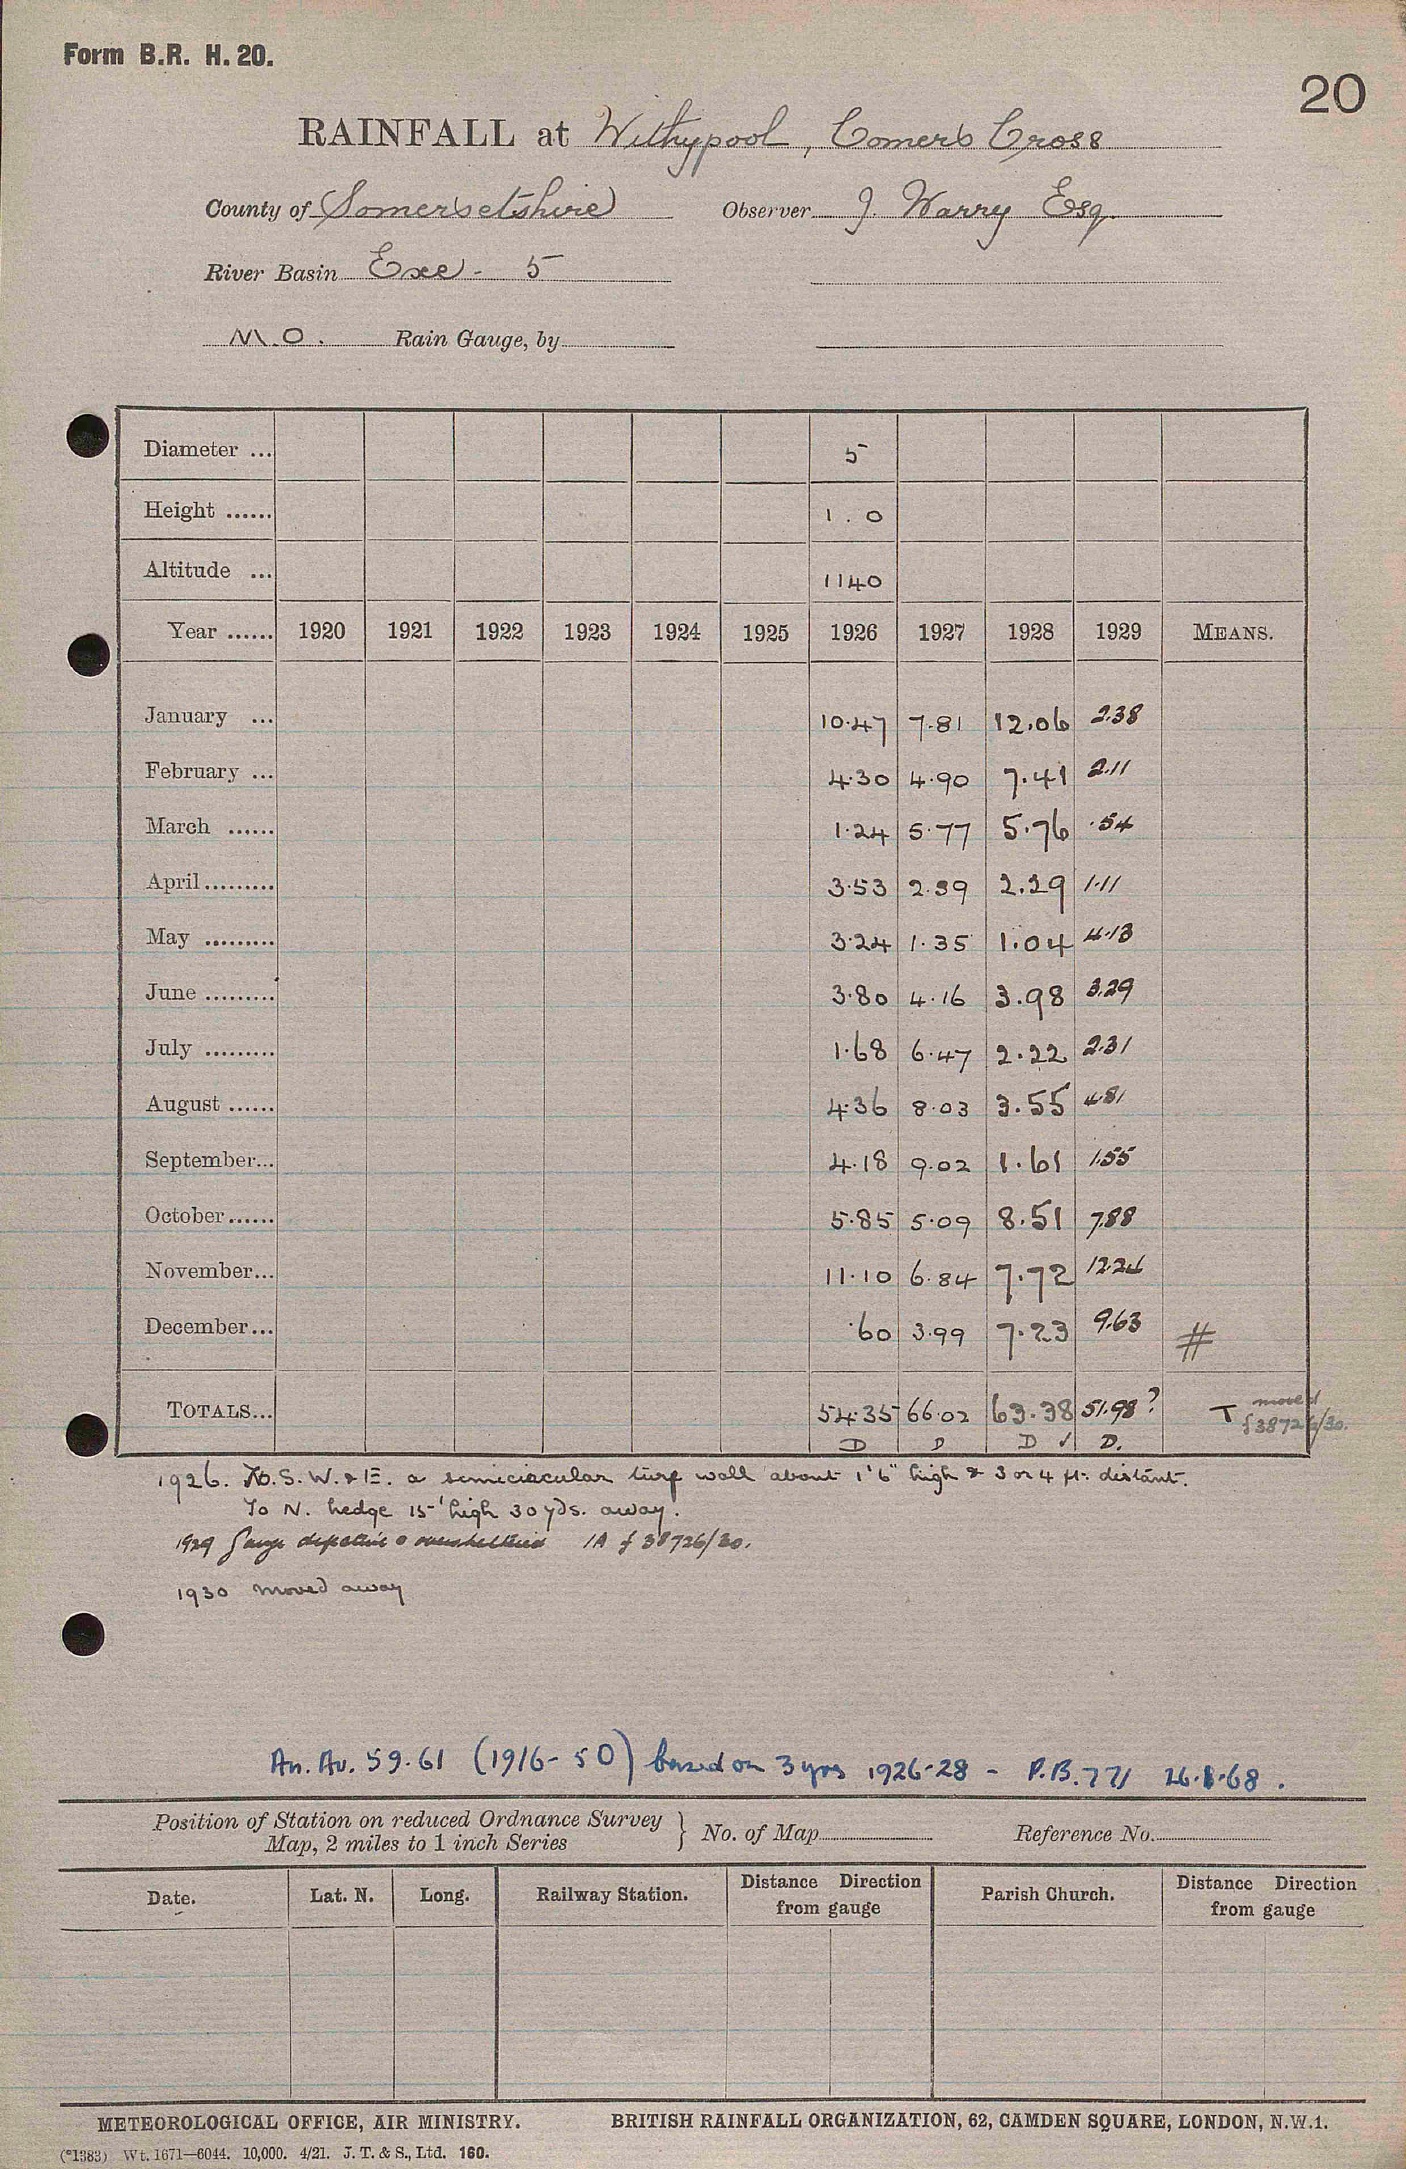 Form B.R. H. 20.
20
RAINFALL at Withypool, Comer's Cross
County of Somersetshire Observer J. Warry Esq.
River Basin Exe - 5
M.O. Rain Gauge, by
Diameter ... 5
Height ...... 1.0
Altitude ... 1140
Year ...... 1920 1921 1922 1923 1924 1925 1926 1927 1928 1929 MEANS.
January ... 10.47 7.81 12.06 2.38
February ... 4.30 4.90 7.41 2.11
March ...... 1.24 5.77 5.76 .54
April ......... 3.53 2.59 2.29 1.11
May ......... 3.24 1.35 1.04 4.13
June ......... 3.80 4.16 3.98 3.29
July ......... 1.68 6.47 2.22 2.31
August ...... 4.36 8.03 3.55 4.81
September... 4.18 9.02 1.61 1.55
October...... 5.85 5.09 8.51 7.88
November... 11.10 6.84 7.72 12.24
December... .60 3.99 7.23 9.63 #
TOTALS... 54.35 66.02 63.38 51.98? T moved
{38726/30.
D D D ✓ D.
1926. To. S. W. & E. a semicircular turf wall about 1'6" high & 3 or 4 ft. distant.
To N. hedge 15' high 30 yds. away.
1929 Gauge defective & oversheltered 1A { 38726/30.
1930 moved away
An. Av. 59.61 (1916-50) based on 3 yrs 1926-28 - P.B.771 26.8.68.
Position of Station on reduced Ordnance Survey
Map, 2 miles to 1 inch Series } No. of Map Reference No.
Date. Lat. N. Long. Railway Station. Distance Direction from gauge Parish Church. Distance Direction from gauge
METEOROLOGICAL OFFICE, AIR MINISTRY. BRITISH RAINFALL ORGANIZATION, 62, CAMDEN SQUARE, LONDON, N.W.1.
(*1383) Wt. 1671—6044. 10,000. 4/21. J. T. & S., Ltd. 160.